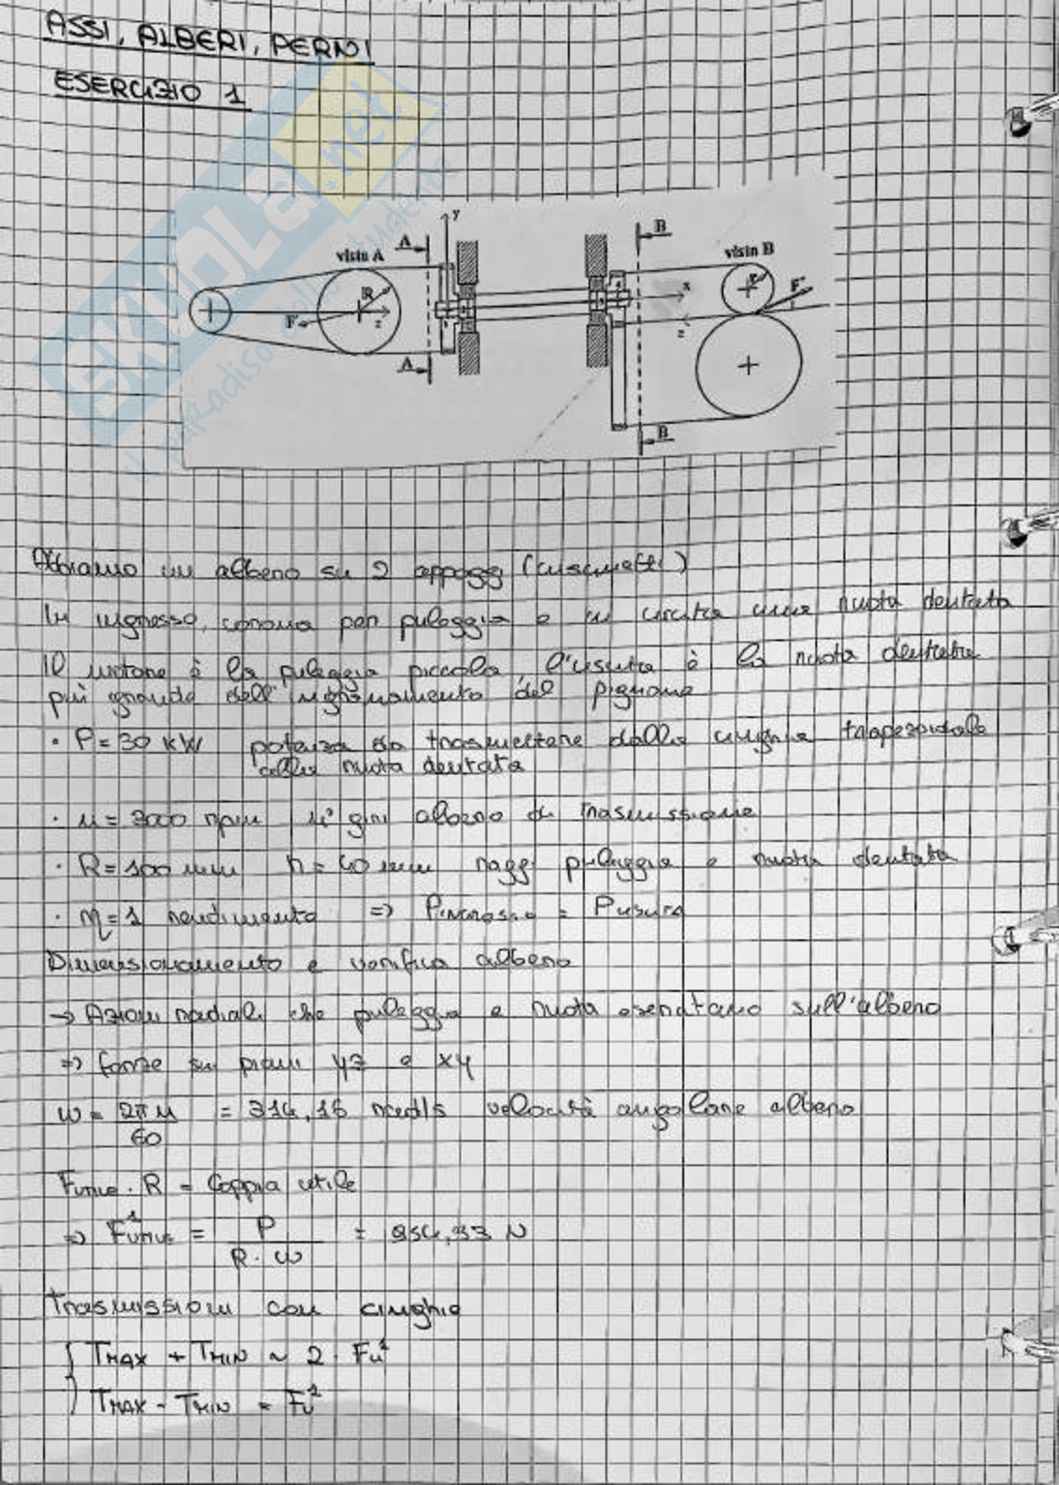 ASSI, ALBERI, PERNI
ESERCIZIO 1
SKUOLA.net
vista A
A
y
B
vista B
R
F
z
x
r
F
z
A
B
Abbiamo un albero su 2 appoggi (cuscinetti)
In ingresso, corona per puleggia e in uscita una ruota dentata
Il motore è la puleggia piccola, l'uscita è la ruota dentata
più grande dell'ingranamento del pignone
· P = 30 kW potenza da trasmettere dalla cinghia trapezoidale
alla ruota dentata
· n = 3000 rpm n° giri albero di trasmissione
· R = 100 mm r = 40 mm raggi puleggia e ruota dentata
· η = 1 rendimento => Pingresso = Puscita
Dimensionamento e verifica albero
-> Azioni radiali che puleggia e ruota esercitano sull'albero
=> forze su piani yz e xy
ω = 2πn/60 = 314,16 rad/s velocità angolare albero
Fume · R = Coppia utile
=> F¹ume = P/(R·ω) = 954,93 N
Trasmissioni con cinghia
{ TMAX + TMIN ~ 2 · Fu¹
TMAX - TMIN = Fu¹